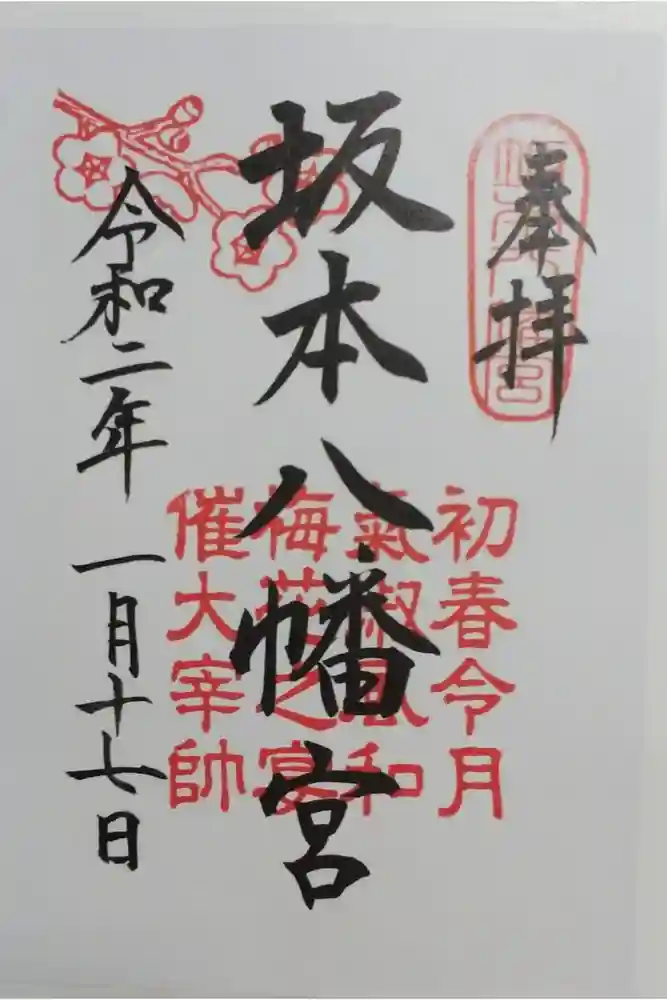 奉拝
坂本八幡宮
初春令月
氣淑風和
梅花之宴
催大宰帥
令和二年一月十七日